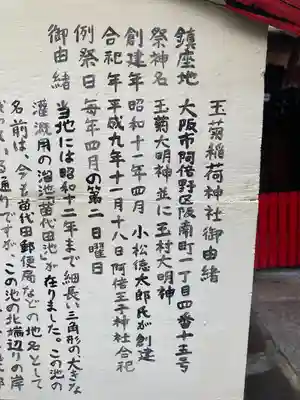 玉菊稲荷神社御由緒
鎮座地 大阪市阿倍野区阪南町一丁目四番十五号
祭神名 玉菊大明神並に玉村大明神
創建年 昭和十一年四月 小松徳太郎氏が創建
合祀年 平成九年十一月十八日阿倍王子神社合祀
例祭日 毎年四月の第二日曜日
御由緒
当地には昭和十二年まで細長い三角形の大きな
灌漑用の溜池苗代田池が在りました。この池の
名前は、今も苗代田郵便局などの地名として
っている通りですが、この池の北端辺りの岸